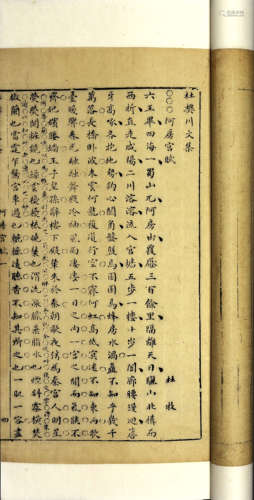 杜樊川文集
阿房宮賦 杜牧
六王畢四海一蜀山兀阿房出覆壓三百餘里隔離天日驪山北構而
西折直走咸陽二川溶溶流入宮墻五步一樓十步一閣廊腰縵迴簷
牙高啄各抱地勢鉤心鬬角盤盤焉囷囷焉蜂房水渦矗不知乎幾千
萬落長橋卧波未雲何龍複道行空不霽何虹高低冥迷不知東西歌
臺暖響春光融融舞殿冷袖風雨淒淒一日之內一宮之間而氣候不
齊妃嬪媵嬙王子皇孫辭樓下殿輦來於秦朝歌夜弦爲秦宮人明星
熒熒開粧鏡也綠雲擾擾梳曉鬟也渭流漲膩棄脂水也煙斜霧橫焚
椒蘭也雷霆乍驚宮車過也轆轆遠聽杳不知其所之也一肌一容盡
阿房宮賦一
四